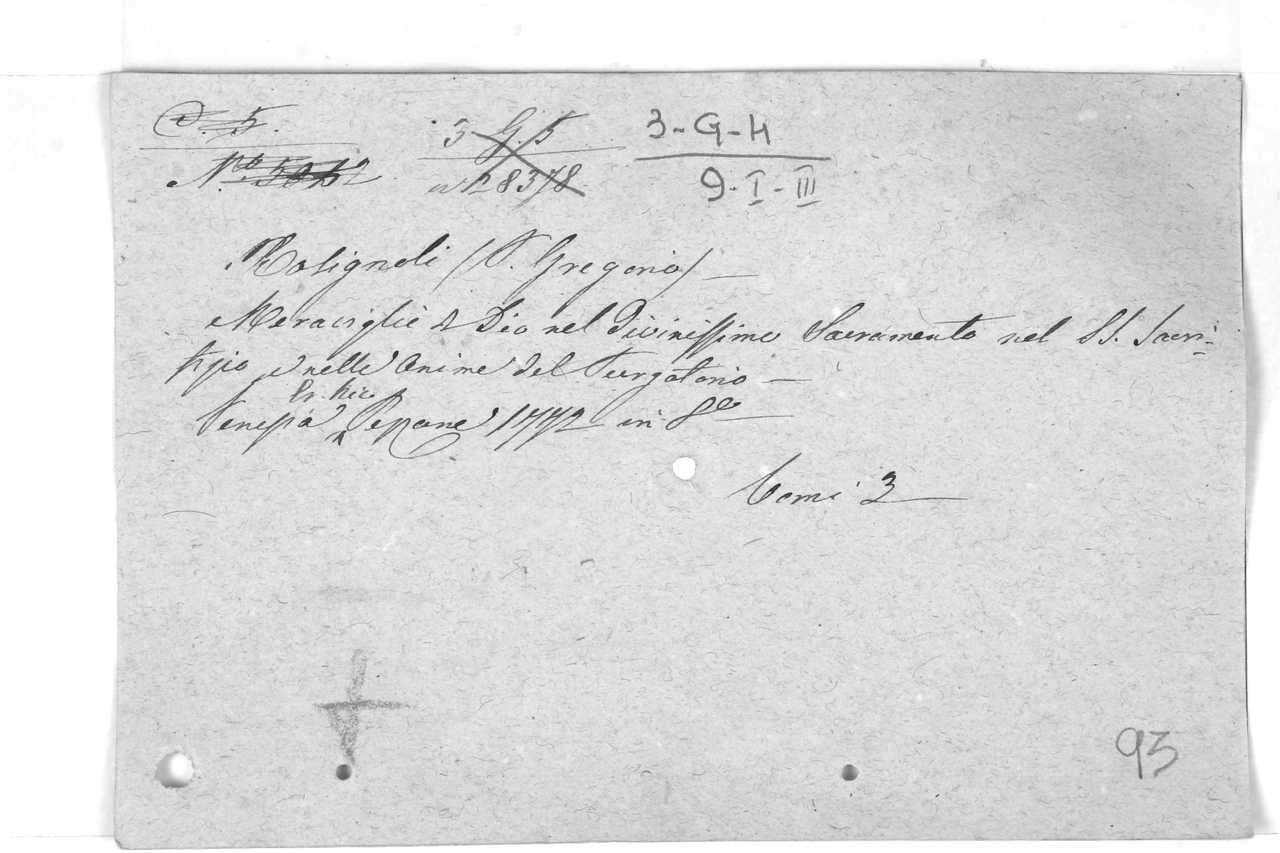 C. 5. 3-G.5 3-G-H
N.º 28378 9-I-III
Rosignoli (P. Gregorio)
Meraviglie di Dio nel Divinissimo Sacramento nel SS. Sacri-
fizio e nelle Anime del Purgatorio
Venezia Pezzana 1772 in 8º
Tomi 3
93